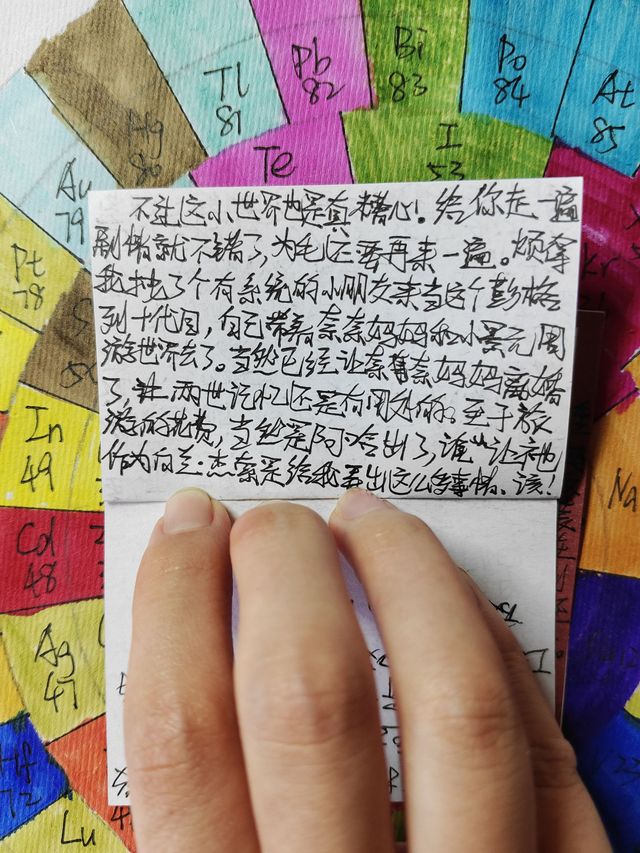 Bi
83
Pb
82
Po
84
Tl
81
At
85
Hg
80
I
53
Te
Au
79
不过这小世界也是真糟心！给你走一遍
剧情就不错了，为毛还要再来一遍。烦拿
我找了个有系统的小朋友来当这个彭格
列十代目，自己带着奈奈妈妈和小景元周
游世界去了。当然已经让奈奈妈妈离婚
了，让两世记忆还是有用处的。至于旅
游的花费，当然是阿哈出了，谁让祂
作为白兰·杰索是给我弄出这么多事情。该！
Pt
78
In
49
Cd
48
Na
Ag
47
Hf
72
Lu